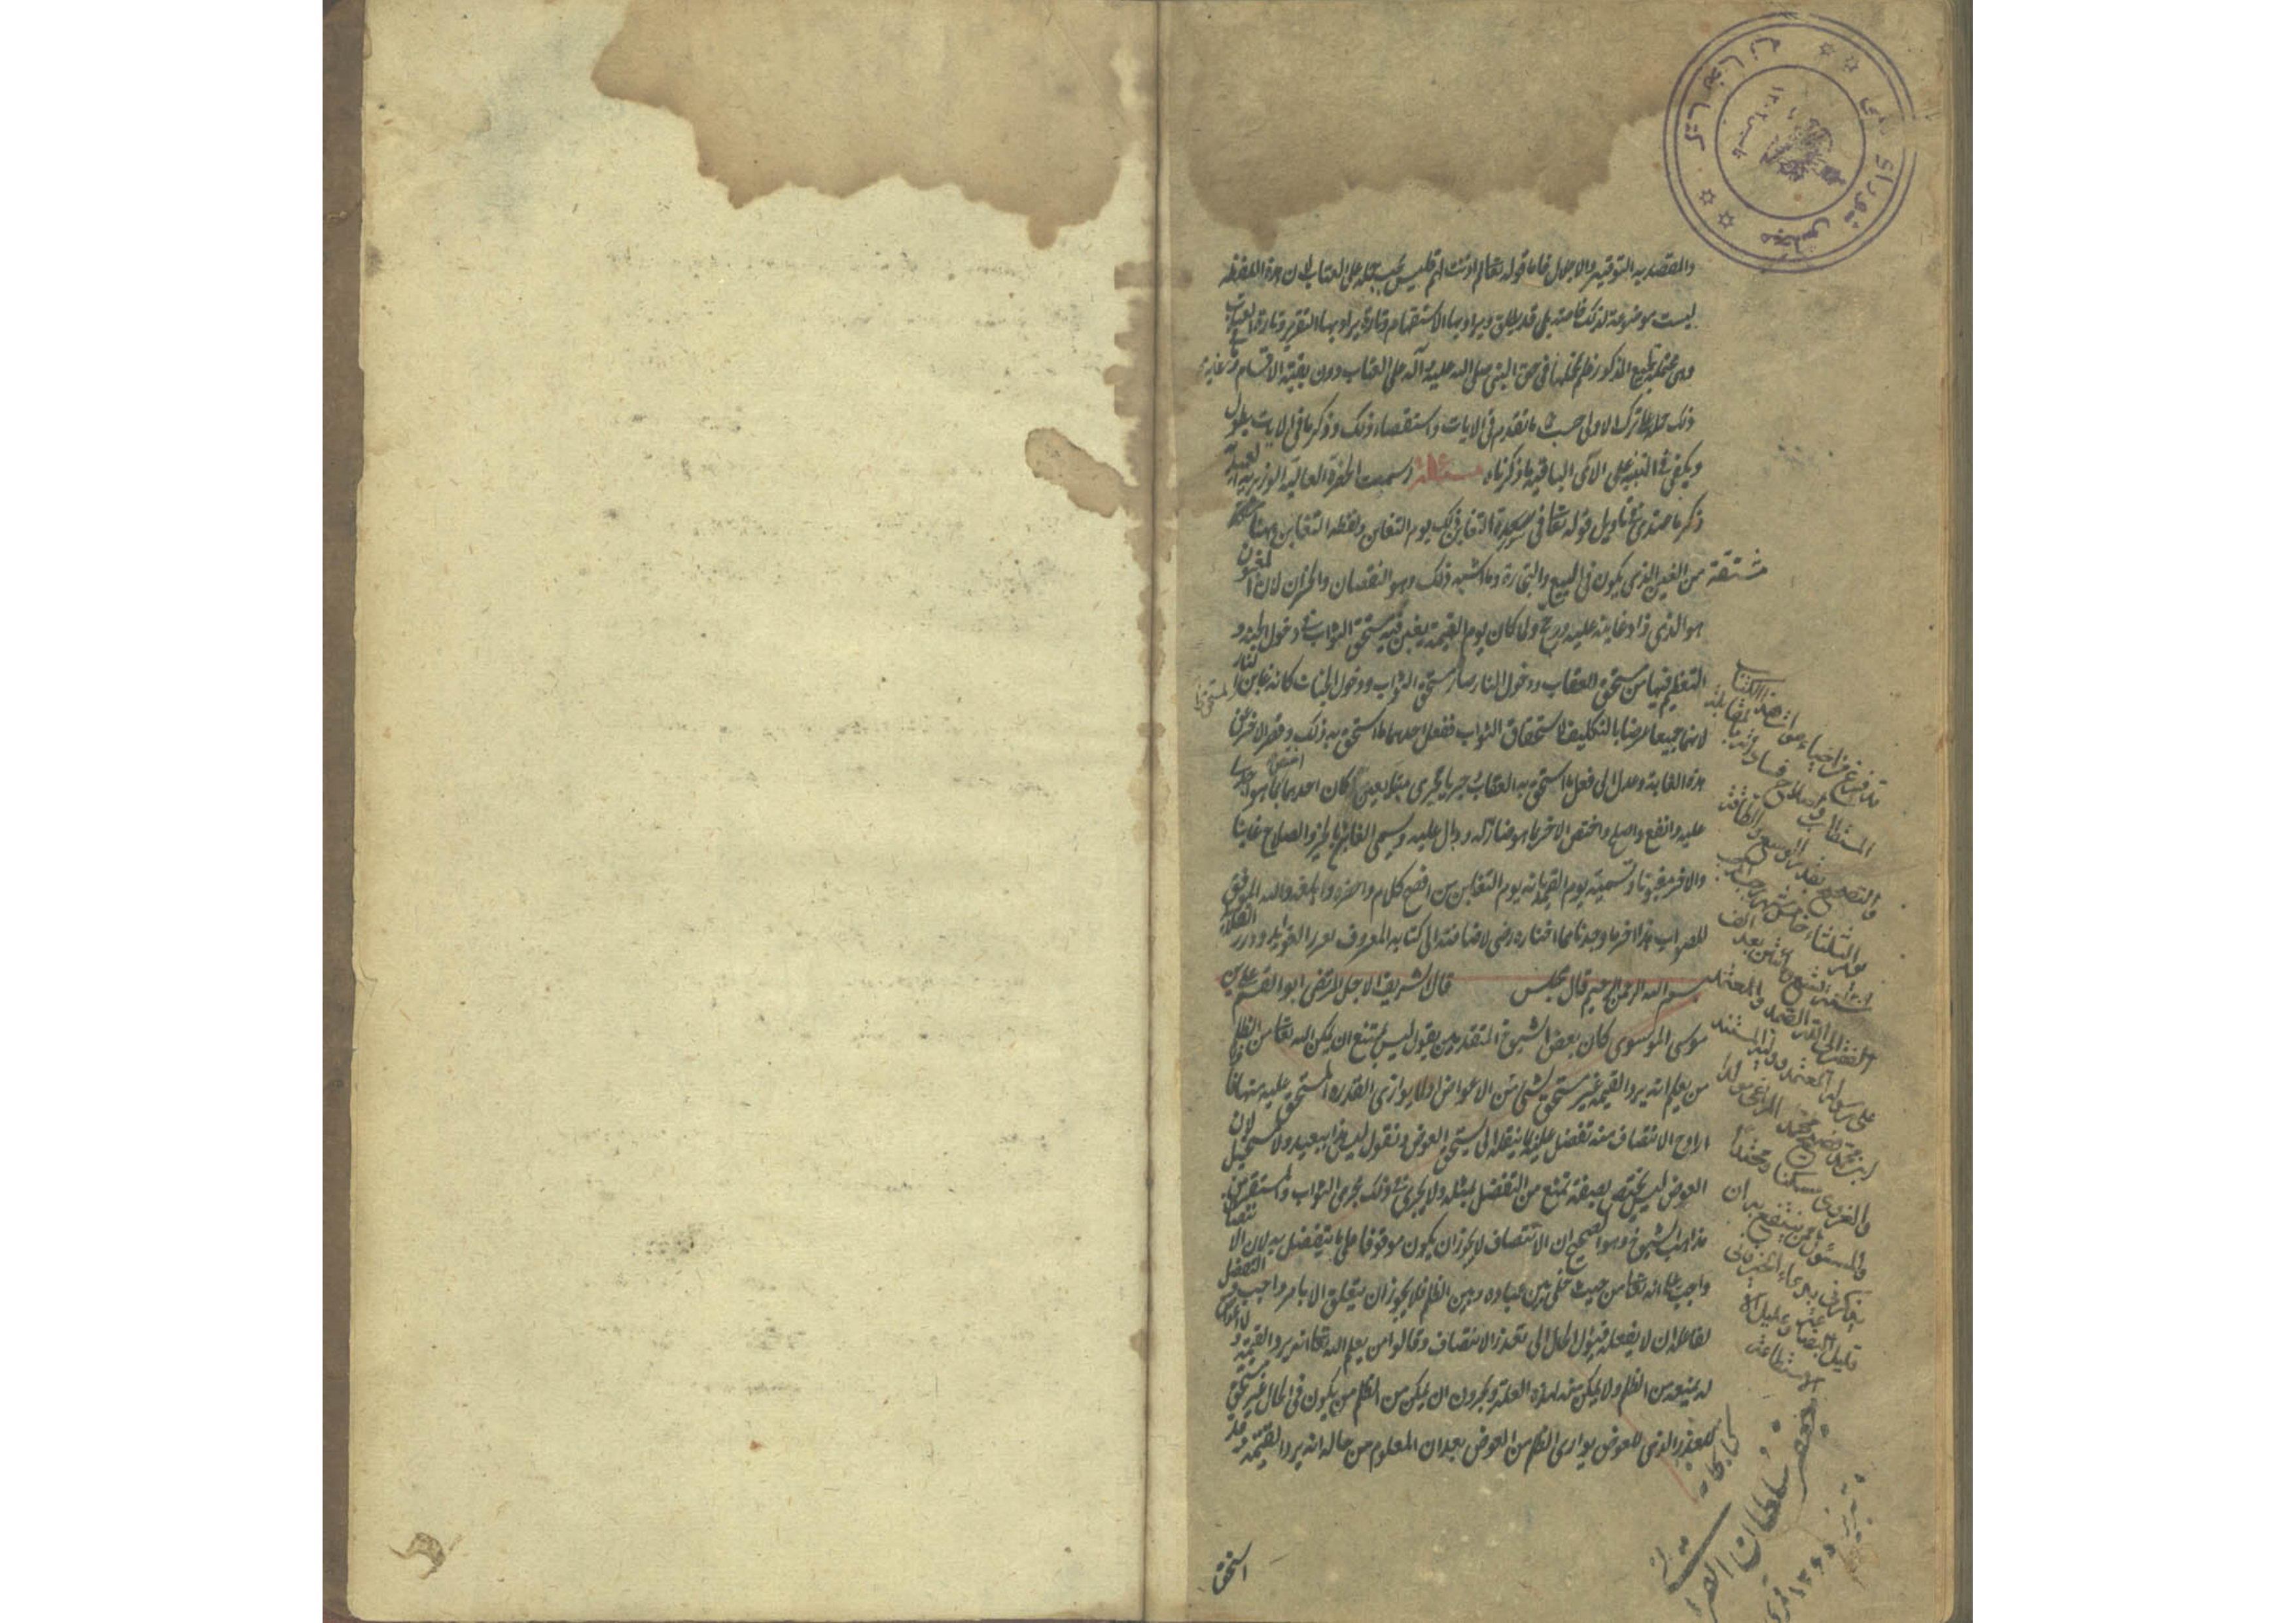 والقصد به التوقير والاجلال فاما قوله تعالى لم اذنت لهم فليس يجب حمله على العتاب لان هذه اللفظة
ليست موضوعة لذلك خاصة بل قد يطلق ويراد بها الاستفهام وتارة يراد بها التقرير وتارة العتاب
وهي محتملة لجميع المذكور فلم نحملها في حق النبي صلى الله عليه وآله على العتاب دون بقية الاقسام وغاية
ذلك حملها على ترك الاولى حسب ما تقدم في الايات واستقصاء ذلك وذكر ما في الايات يطول
ويكفي في التنبيه على الآي الباقية ما ذكرناه مسئلة رسمت الحضرة العالية الوزيرية
ذكر ما عندي في تاويل قوله تعالى في سورة التغابن ذلك يوم التغابن ولفظة التغابن ههنا
مشتقة من الغبن الذي يكون في البيع والتجارة وما اشبه ذلك وهو النقصان والخسران لان المغبون
هو الذي زاد غابنه عليه ورجح ولما كان يوم القيمة يغبن فيه مستحق الثواب دخول الجنة و
التعظيم فيها من مستحق العقاب ودخول النار صار مستحق الثواب ودخول الجنات كانه غابن لمستحق النار
لانهما جميعا عرضا بالتكليف لاستحقاق الثواب ففعل احدهما ما استحق به ذلك وقصر الاخر عن
هذه الغاية وعدل الى فعل ما استحق به العقاب جريا مجرى متبايعين اختص كان احدهما بما هو
عليه وانفع واصلح واختص الاخر بما هو ضار له ووبال عليه ويسمى الفائز بالخير والصلاح غابنا
والاخر مغبونا وتسمية يوم القيمة بانه يوم التغابن من افصح كلام واخصره وابلغه والله الموفق
للصواب هذا اخر ما وجدناه مما اختاره رضي الله عنه اضافته الى كتابه المعروف بغرر الفوائد ودرر القلائد
بسم الله الرحمن الرحيم قال مجلس قال الشريف الاجل المرتضى ابو القسم علي بن
موسى الموسوي كان بعض الشيوخ المتقدمين يقول ليس يمتنع ان يمكن الله تعالى من الظلم
من يعلم انه يرد القيمة غير مستحق لشيء من الاعواض اولا يوازي القدر المستحق عليه منها فاذا
اراد الانتصاف منه تفضل عليه بما ينقله الى مستحق العوض ونقول ليس هذا ببعيد ولا مستحيل لان
العوض ليس يختص بصفة تمنع من التفضل بمثله ولا يجري في ذلك مجرى الثواب والمستقر من
مذاهب الشيوخ وهو الصحيح ان الانتصاف لا يجوز ان يكون موقوفا على ما يتفضل به لان الانتصاف
واجب عليه تعالى من حيث خلى بين عباده وبين الظلم فلا يجوز ان يتعلق الا بامر واجب والتفضل
لفاعله ان لا يفعله فيؤل الحال الى تعذر الانتصاف وقالوا من يعلم الله تعالى انه يرد القيمة و لا اعواض
له يمنعه من الظلم ولا يمكن منه لهذه العلة ويجوزون ان يمكن من الظلم من يكون في الحال غير مستحق
للقدر الذي للعوض يوازي الظلم من العوض بعد ان المعلوم من حاله انه يرد القيمة وقد
استحق
قد فرغ من احياء موات هذا الكتاب
المستطاب واصلاح فساده بالمقابلة
والتصحيح بقدر الوسع والطاقة
يوم الثلثاء خامس شهر رجب
سنة بعد الالف
الفقير الى الله الصمد والمعتمد
على رسوله المعتمد
ابن محمد
والغروي مسكنا ومحتدا
والمسئول ممن ينتفع به ان
يذكرني بدعاء الخير فاني
قليل البضاعة وعليل
الاستطاعة
كتابخانه
سلطان القرائي
تبريز
مجلس شورای ملی
كتابخانه